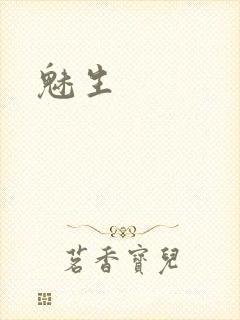 魅生
茗香寶兒